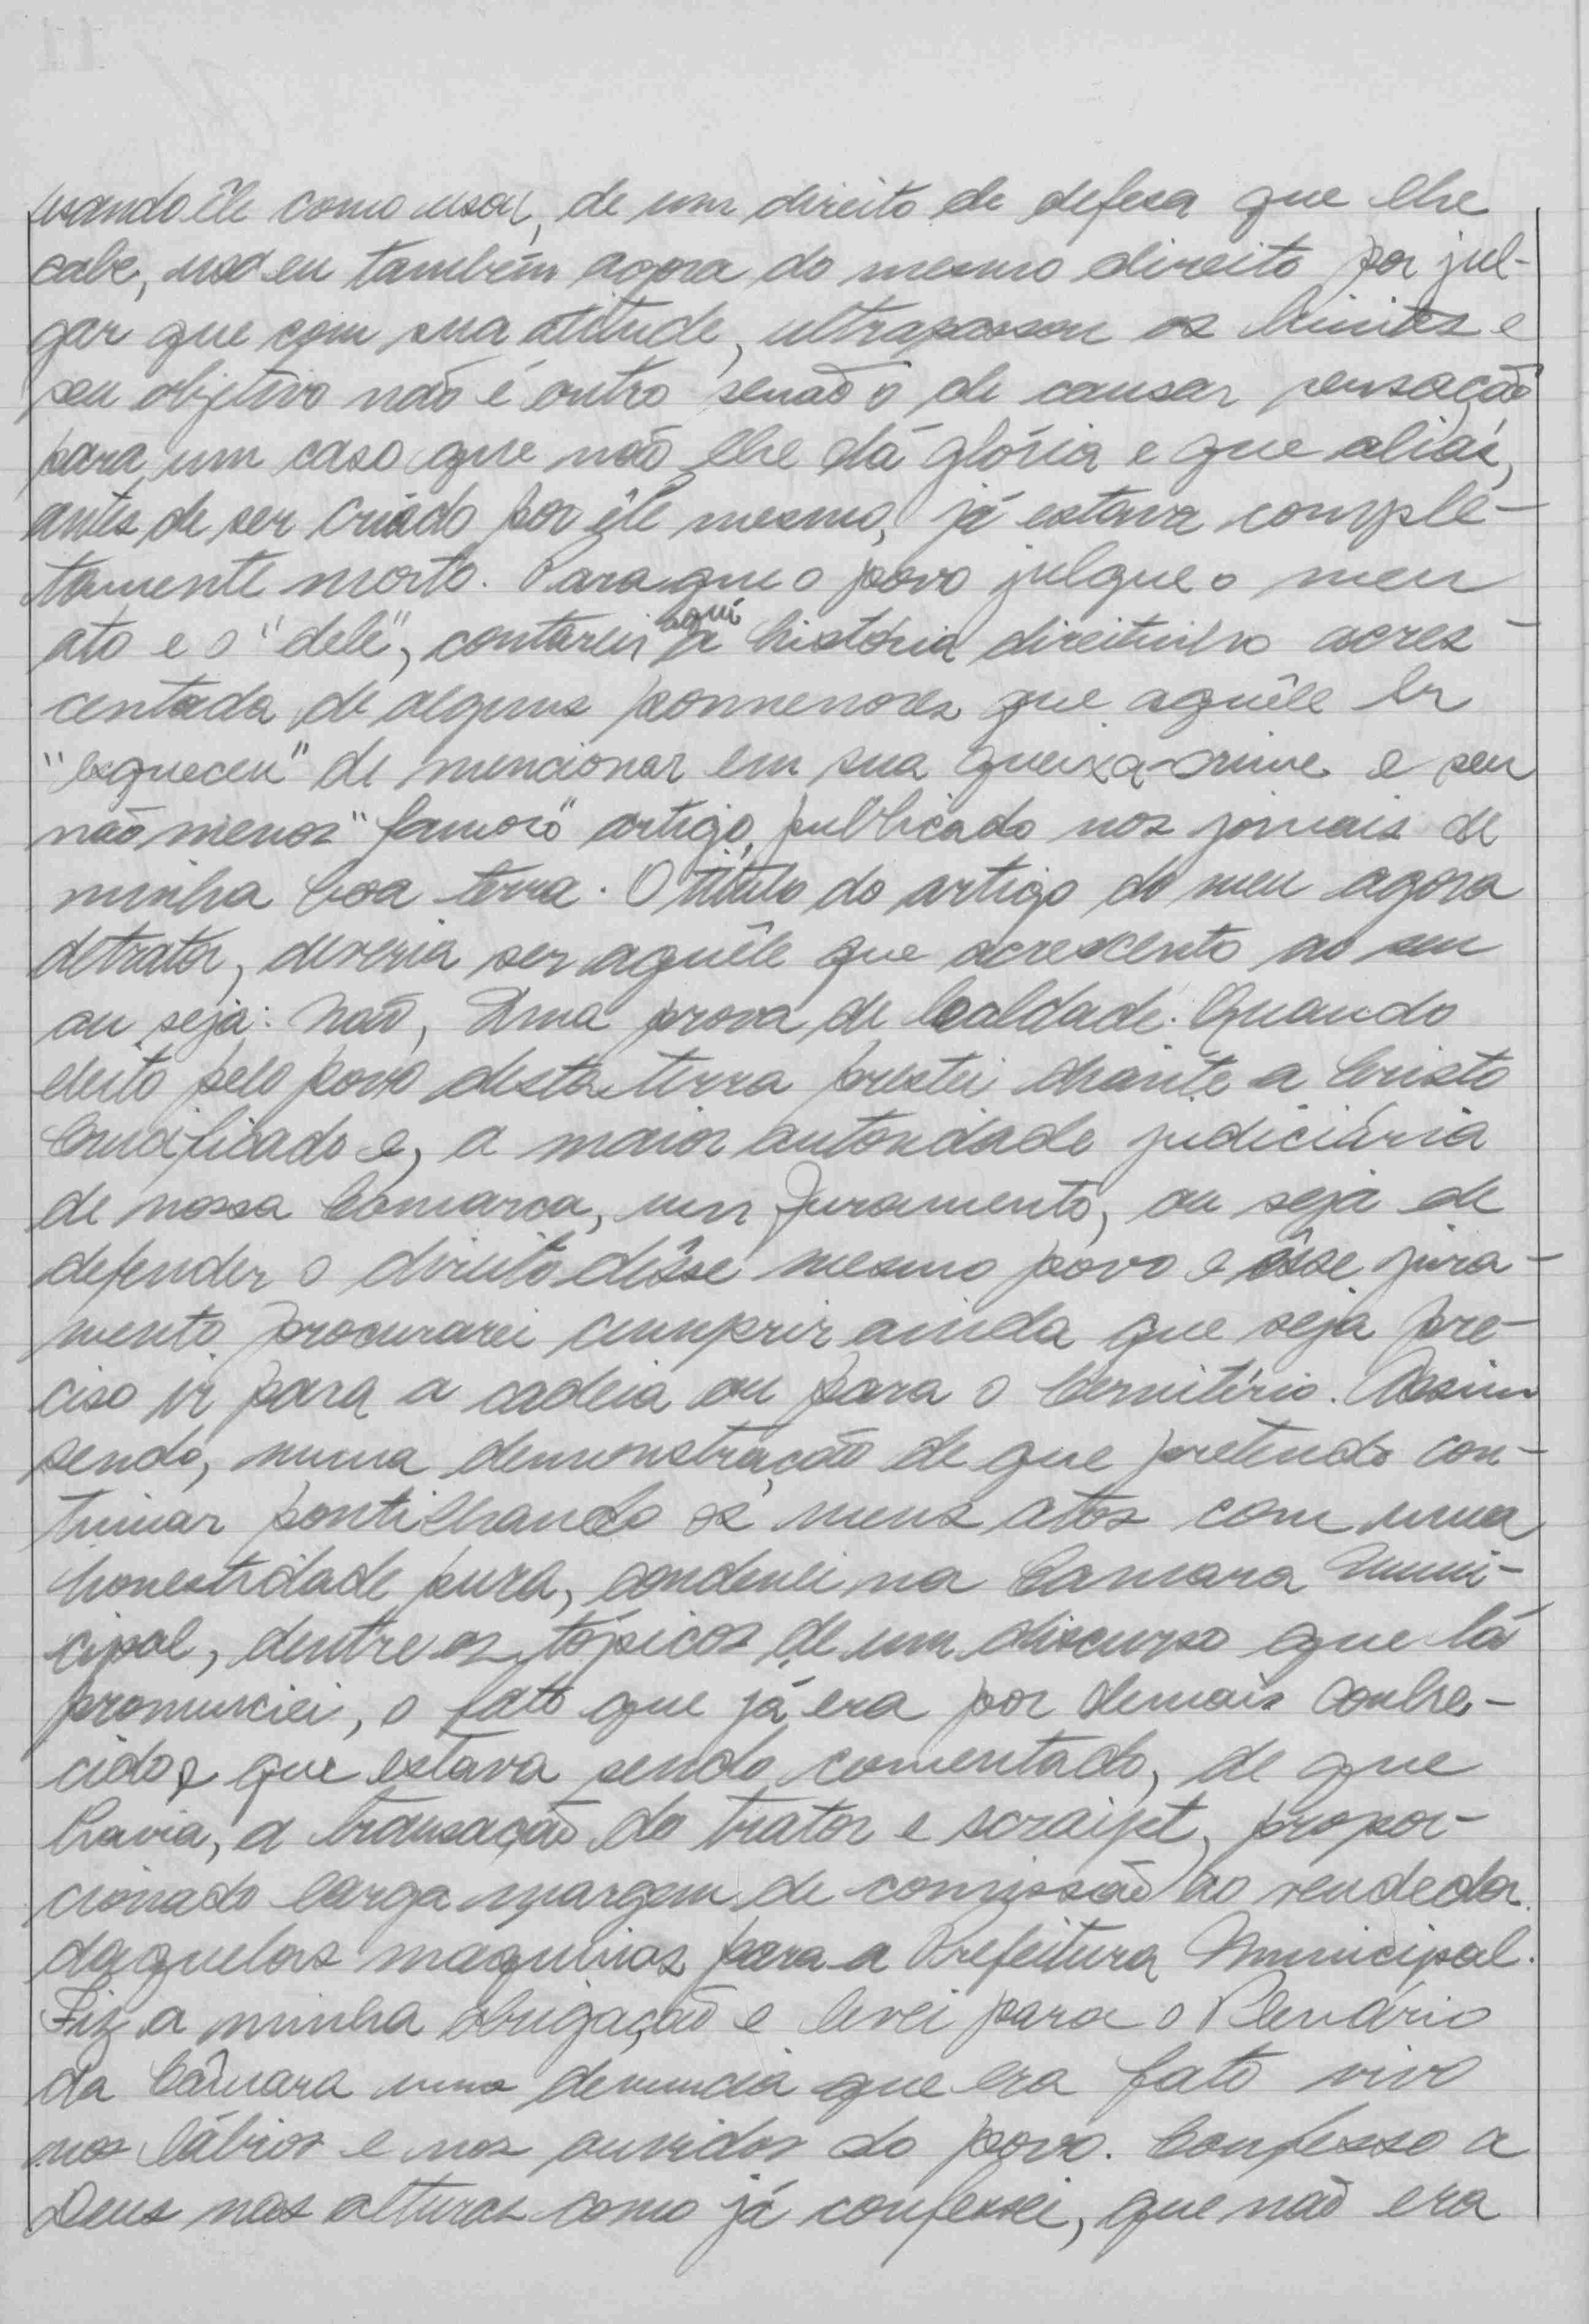 usando êle como usou, de um direito de defesa que lhe
cabe, uso eu também agora do mesmo direito por jul-
gar que com sua atitude, ultrapassou os limites e
seu objetivo não é outro senão o de causar sensação
para um caso que não lhe dá glória e que aliás,
antes de ser criado por êle mesmo, já estava comple-
tamente morto. Para que o povo julgue o meu
ato e o "dele", contarei aqui a história direitinho acres-
centada de alguns pormenores que aquêle Sr
"esqueceu" de mencionar em sua queixa-crime e seu
não menos "famoso" artigo, publicado nos jornais de
minha boa terra. O titulo do artigo do meu agora
detrator, deveria ser aquêle que acrescento ao seu
ou seja: Não, Uma prova de lealdade. Quando
eleito pelo povo desta terra prestei diante a Cristo
Crucificado e, a maior autoridade judiciária
de nossa Comarca, um Juramento, ou seja de
defender o direito dêsse mesmo povo e êsse jura-
mento procurarei cumprir ainda que seja pre-
ciso ir para a cadeia ou para o Cemitério. Assim
sendo, numa demonstração de que pretendo con-
tinuar pontilhando os meus atos com uma
honestidade pura, condenei na Camara Muni-
cipal, dentre os tópicos de um discurso que lá
pronunciei, o fato que já era por demais conhe-
cido e que estava sendo comentado, de que
havia, a transação do trator e scraipt, propor-
cionado larga margem de comissão ao vendedor
daquelas maquinas para a Prefeitura Municipal.
Fiz a minha obrigação e levei para o Plenário
da Câmara uma denuncia que era fato vivo
nos lábios e nos ouvidos do povo. Confesso a
Deus nas alturas como já confessei, que não era